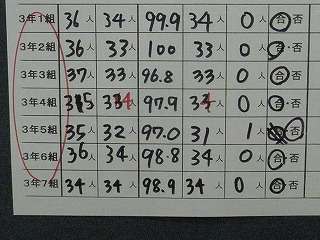 3年1組 36人 34人 99.9 34人 0人 合・否
3年2組 36人 33人 100 33人 0人 合・否
3年3組 37人 33人 96.8 33人 0人 合・否
3年4組 35人 34人 97.9 34人 0人 合・否
3年5組 35人 32人 97.0 31人 1人 合・否
3年6組 36人 34人 98.8 34人 0人 合・否
3年7組 34人 34人 98.9 34人 0人 合・否